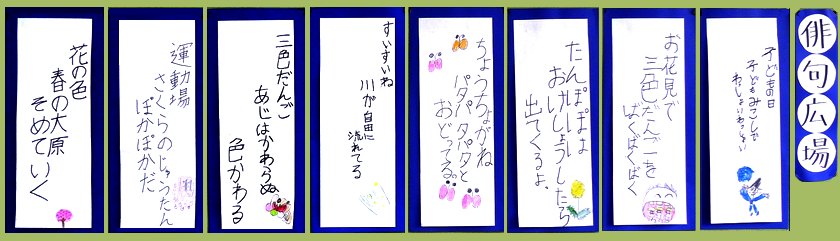 俳句広場
子どもの日
子どもみこしで
わっしょいわっしょい
お花見で
三色だんごを
ぱくぱくぱく
たんぽぽは
おけしょうしたら
出てくるよ、
ちょうちょがね
パタパタパタと
おどってる。
すいすいね
川が自由に
流れてる
三色だんご
あじはかわらぬ、
色かわる
運動場
さくらのじゅうたん
ぽかぽかだ
花の色
春の大原
そめていく